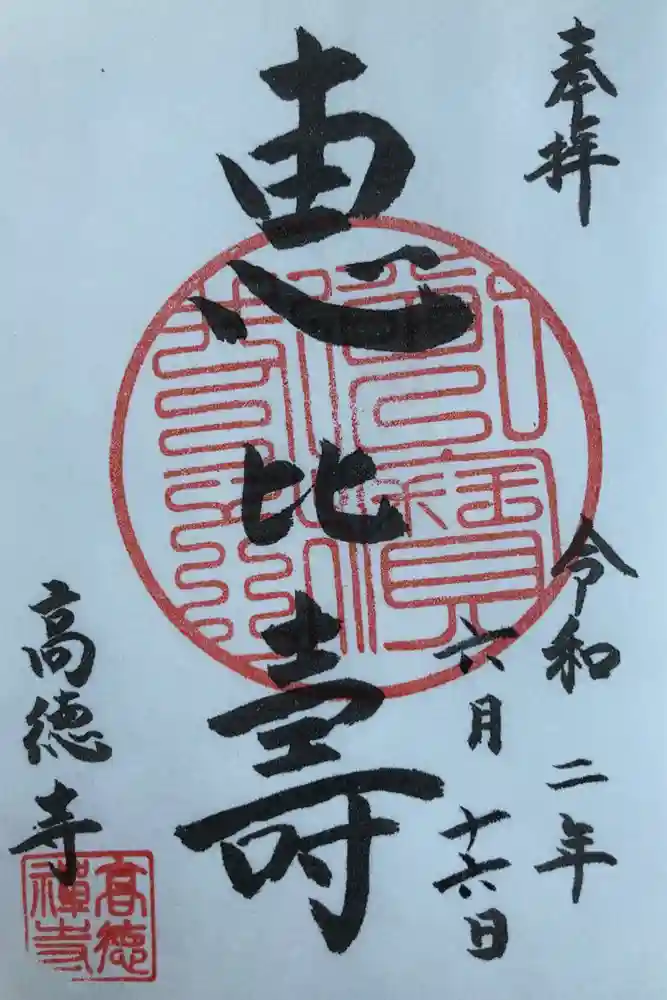 奉拝
令和二年
六月十六日
恵比壽
高徳寺
高徳
禅寺